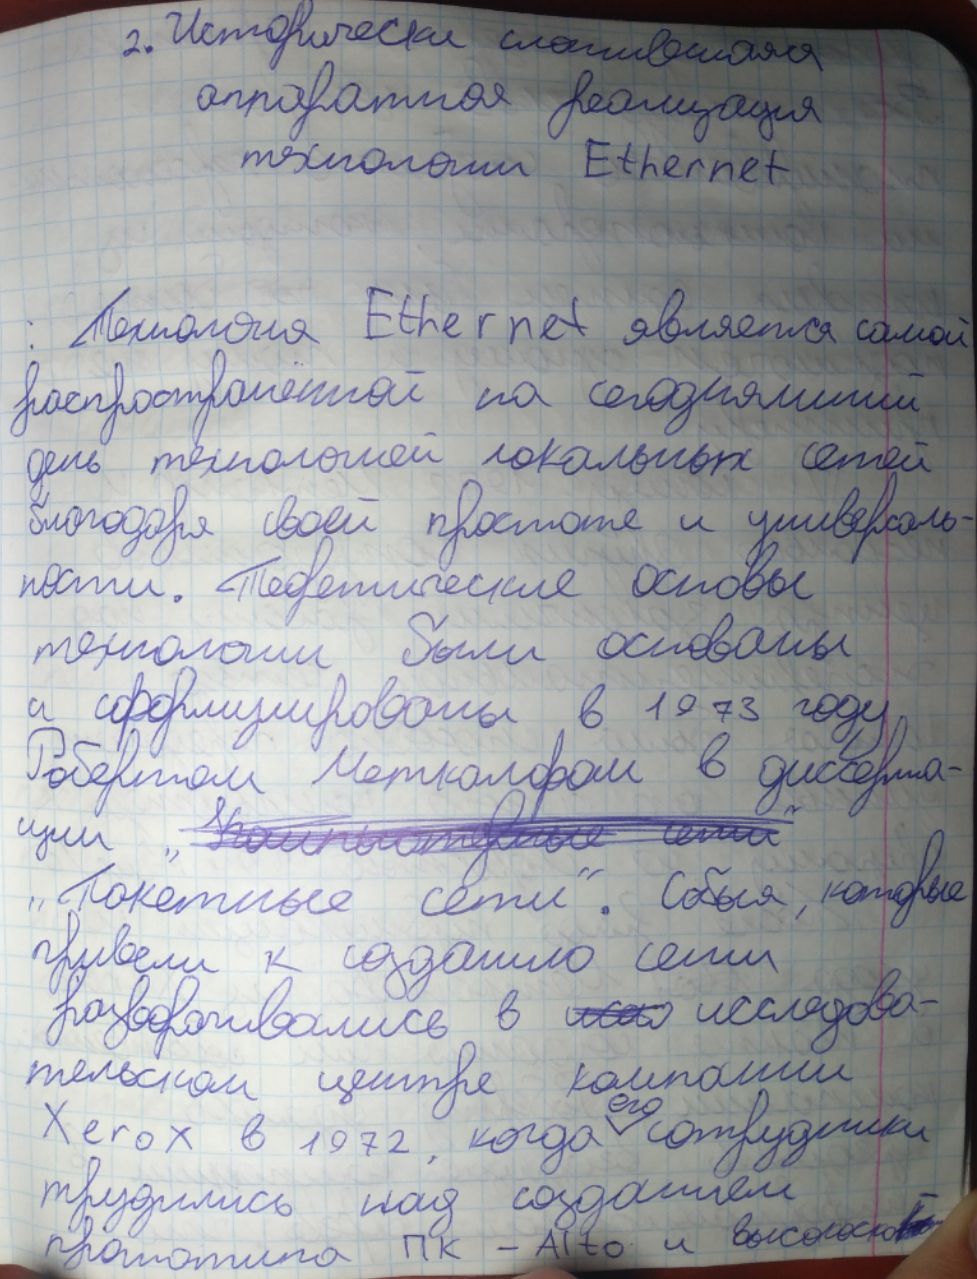 2. Исторически сложившаяся
аппаратная реализация
технологии Ethernet
: Технология Ethernet является самой
распространённой на сегодняшний
день технологией локальных сетей
благодаря своей простоте и универсаль-
ности. Теоретические основы
технологии были основаны
и сформулированы в 1973 году
Робертом Меткалфом в диссерта-
ции „Компьютерные сети“
„Пакетные сети“. Событя, которые
привели к созданию сети
разворачивались в исследова-
тельском центре компании
Xerox в 1972, когда его сотрудники
трудились над созданием
прототипа ПК – Alto и